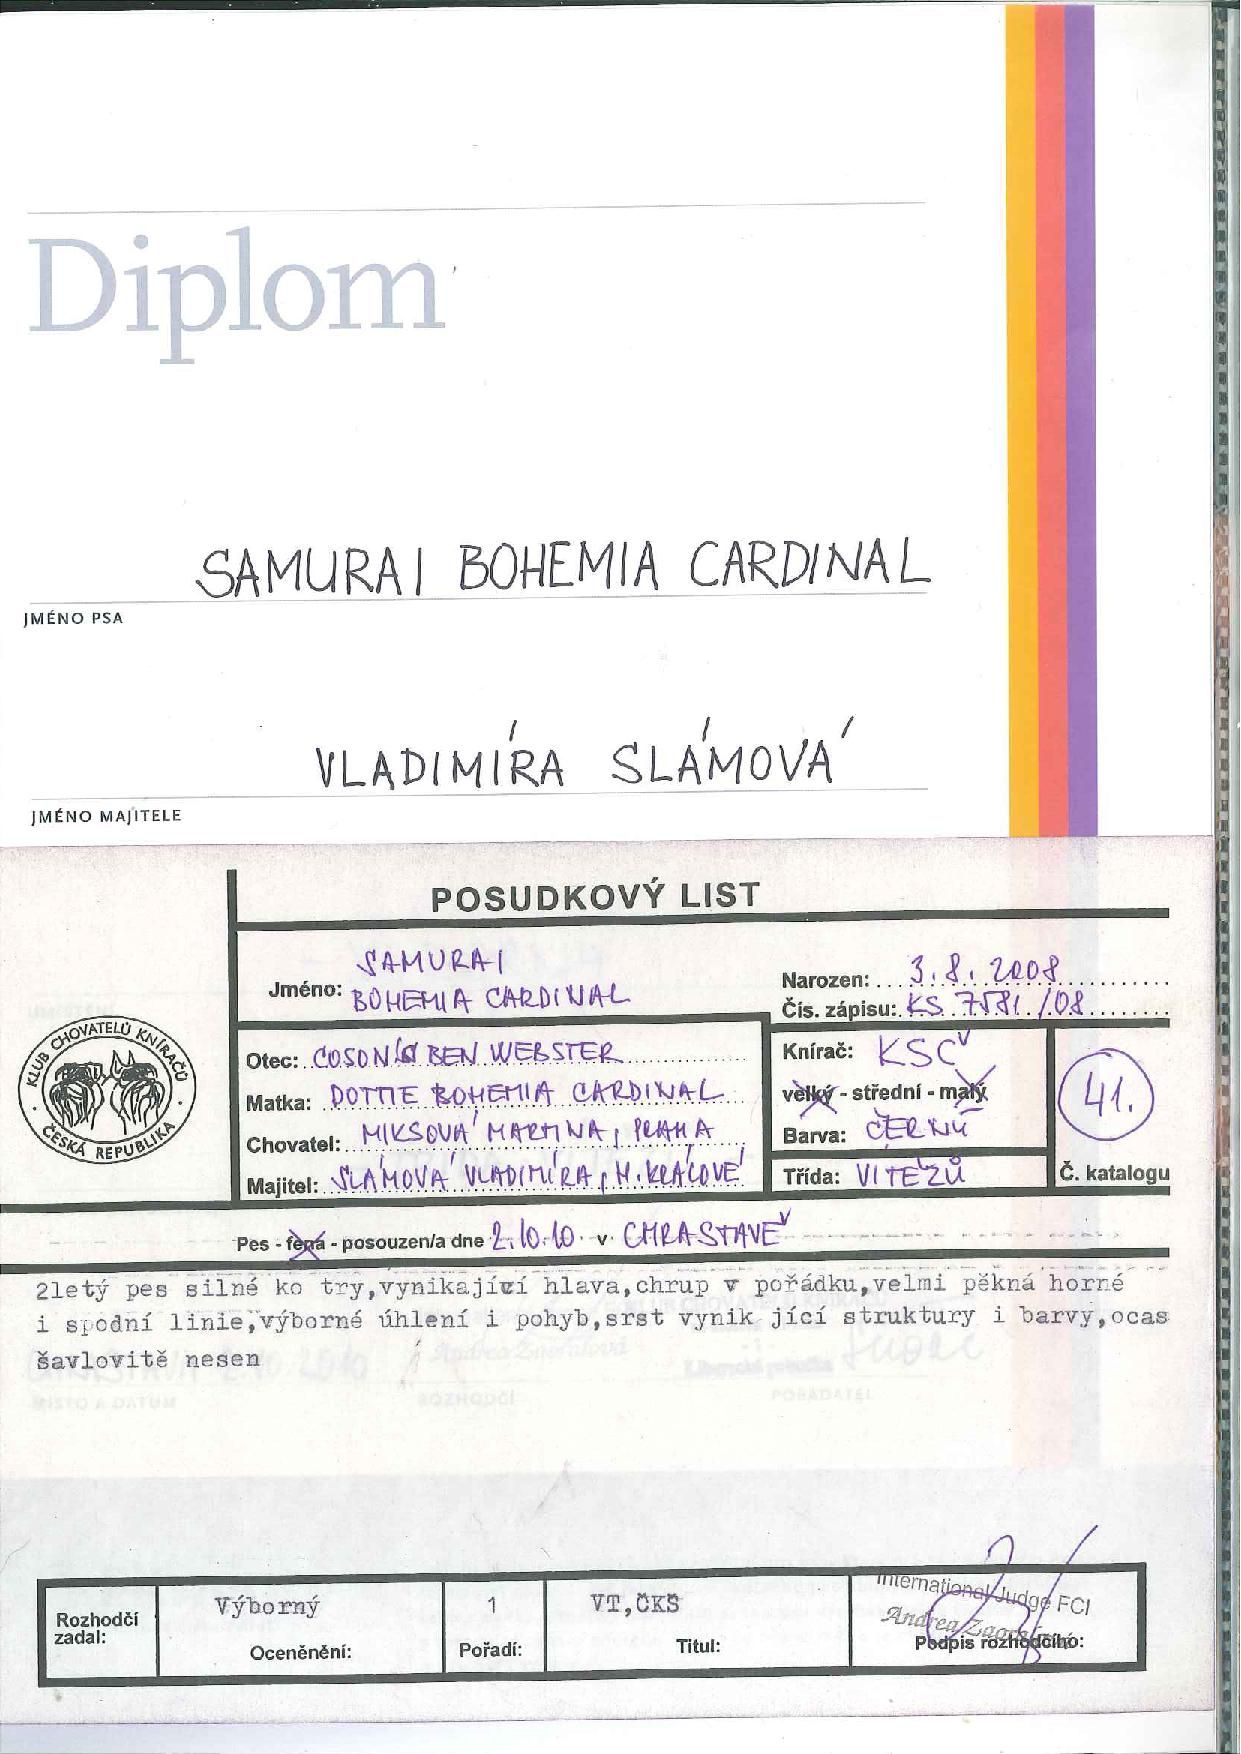 Diplom
SAMURAI BOHEMIA CARDINAL
JMÉNO PSA
VLADIMÍRA SLÁMOVÁ
JMÉNO MAJITELE
POSUDKOVÝ LIST
KLUB CHOVATELŮ KNÍRAČŮ
ČESKÁ REPUBLIKA
Jméno: SAMURAI
BOHEMIA CARDINAL
Narozen: 3. 8. 2008
Čís. zápisu: KS 7581 /08
Otec: COSONIA BEN WEBSTER
Matka: DOTTIE BOHEMIA CARDINAL
Chovatel: MIKSOVÁ MARTINA, PRAHA
Majitel: SLÁMOVÁ VLADIMÍRA, H. KRÁLOVÉ
Knírač: KSČ
velký - střední - malý
Barva: ČERNÝ
Třída: VITĚZŮ
41.
Č. katalogu
Pes - fena - posouzen/a dne 2.10.10 v CHRASTAVĚ
2letý pes silné ko try,vynikající hlava,chrup v pořádku,velmi pěkná horné
i spodní linie,výborné úhlení i pohyb,srst vynik jící struktury i barvy,ocas
šavlovitě nesen
Rozhodčí
zadal:
Výborný
Oceněnění:
1
Pořadí:
VT,ČKŠ
Titul:
International Judge FCI
Andrea
Podpis rozhodčího: